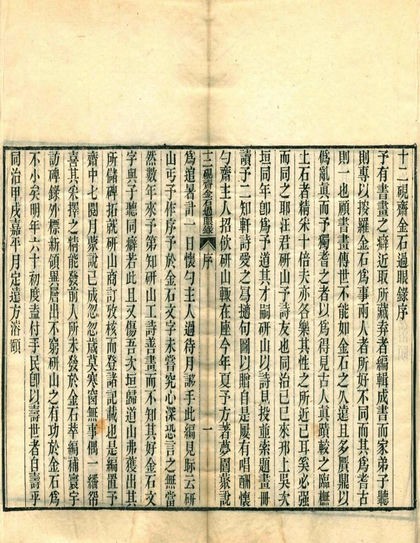 十二硯齋金石過眼錄序
予有書畫之癖近取所藏弆者編輯成書而家弟子聽
則專以搜羅金石爲事兩人者所好不同而其爲耆古
則一也顧書畫傳世不能如金石之久遠且多贋鼎以
僞亂真而予獨耆之者以爲得見古人真蹟較之臨橅
上石者精采十倍夫亦各樂其性之所近已耳奚必强
而同之耶汪君研山予詩友也同治己巳來邗上吳次
垣同年卽爲予道其才嗣研山以詩見投並索題畫冊
讀予二知軒詩愛之爲摘句圖以貽自是屢有唱酬懷
勺齋主人招飲研山輒在座今年夏予方著夢園叢說
十二硯齋金石過眼錄 序 一
爲逭暑計一日懷勺主人過待月謻手此編見眎云研
山丐予作序予於金石文字未嘗究心深恐言之無當
然數年來予第知研山工詩善畫而不知其好金石文
字與子聽同癖若此且又傷吾次垣歸道山弗獲出其
所儲碑拓就研山商訂攷核而登諸記載也是編置予
齋中七閱月叢說已成忽忽歲莫寒窗無事偶一繙帋
喜其采擇之精能發前人所未發於金石萃編補寰宇
訪碑錄外標新領異層出不窮研山之有功於金石爲
不小矣明年六十初度盍付手民卽以壽世者自壽乎
同治甲戌嘉平月定遠方濬頤